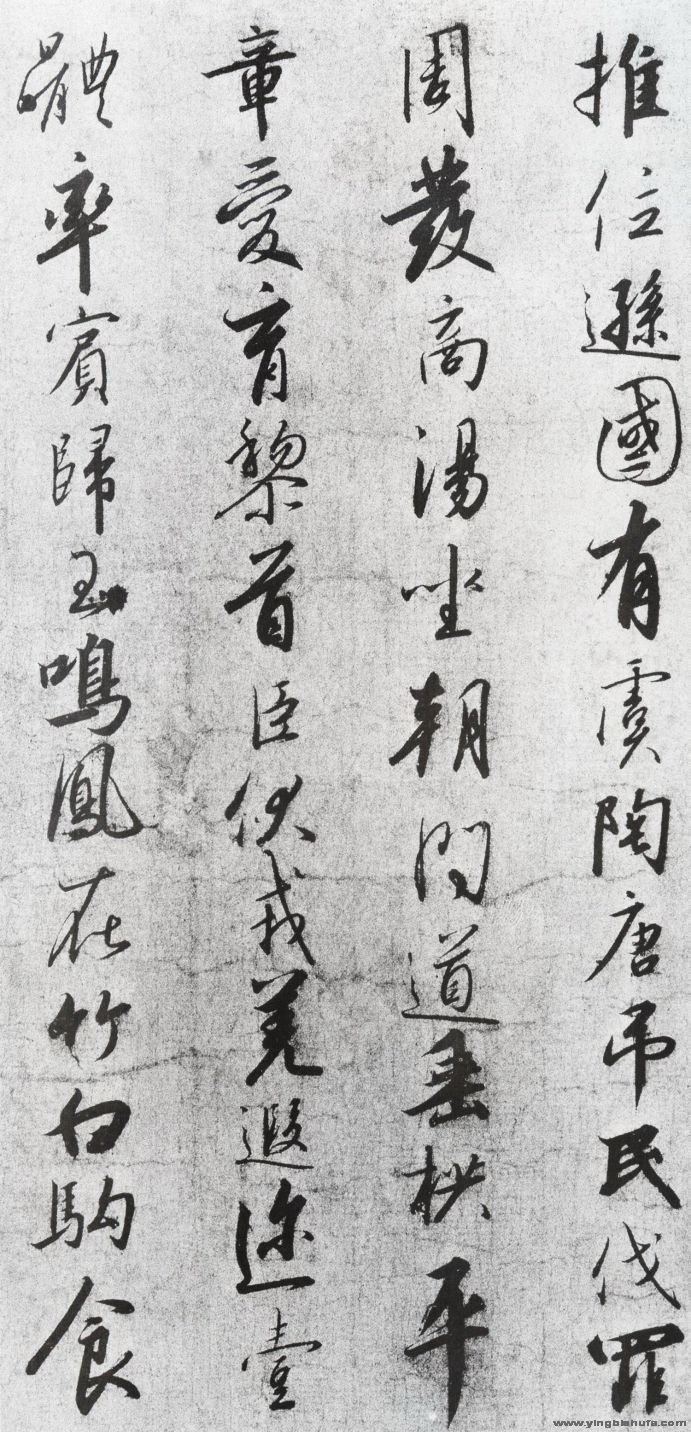 推位遜國有虞陶唐吊民伐罪
周發商湯坐朝問道垂拱平
章愛育黎首臣伏戎羌遐邇壹
體率賓歸王鳴鳳在竹白駒食
www.yingbishufa.com